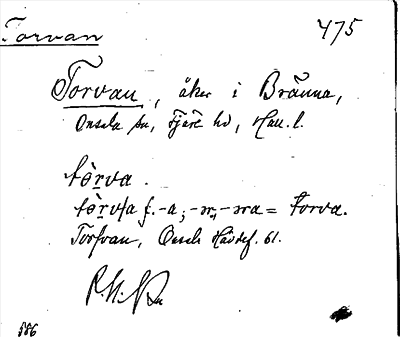 Torvan
475
Torvan, åker i Bränna,
Onsala sn, Fjäre hd, Hall. l.
tòrva.
tòrv/a f. -a; -ɷ, -ɷa = torva.
Torfvan, Onsala Hävdef. 61.
586